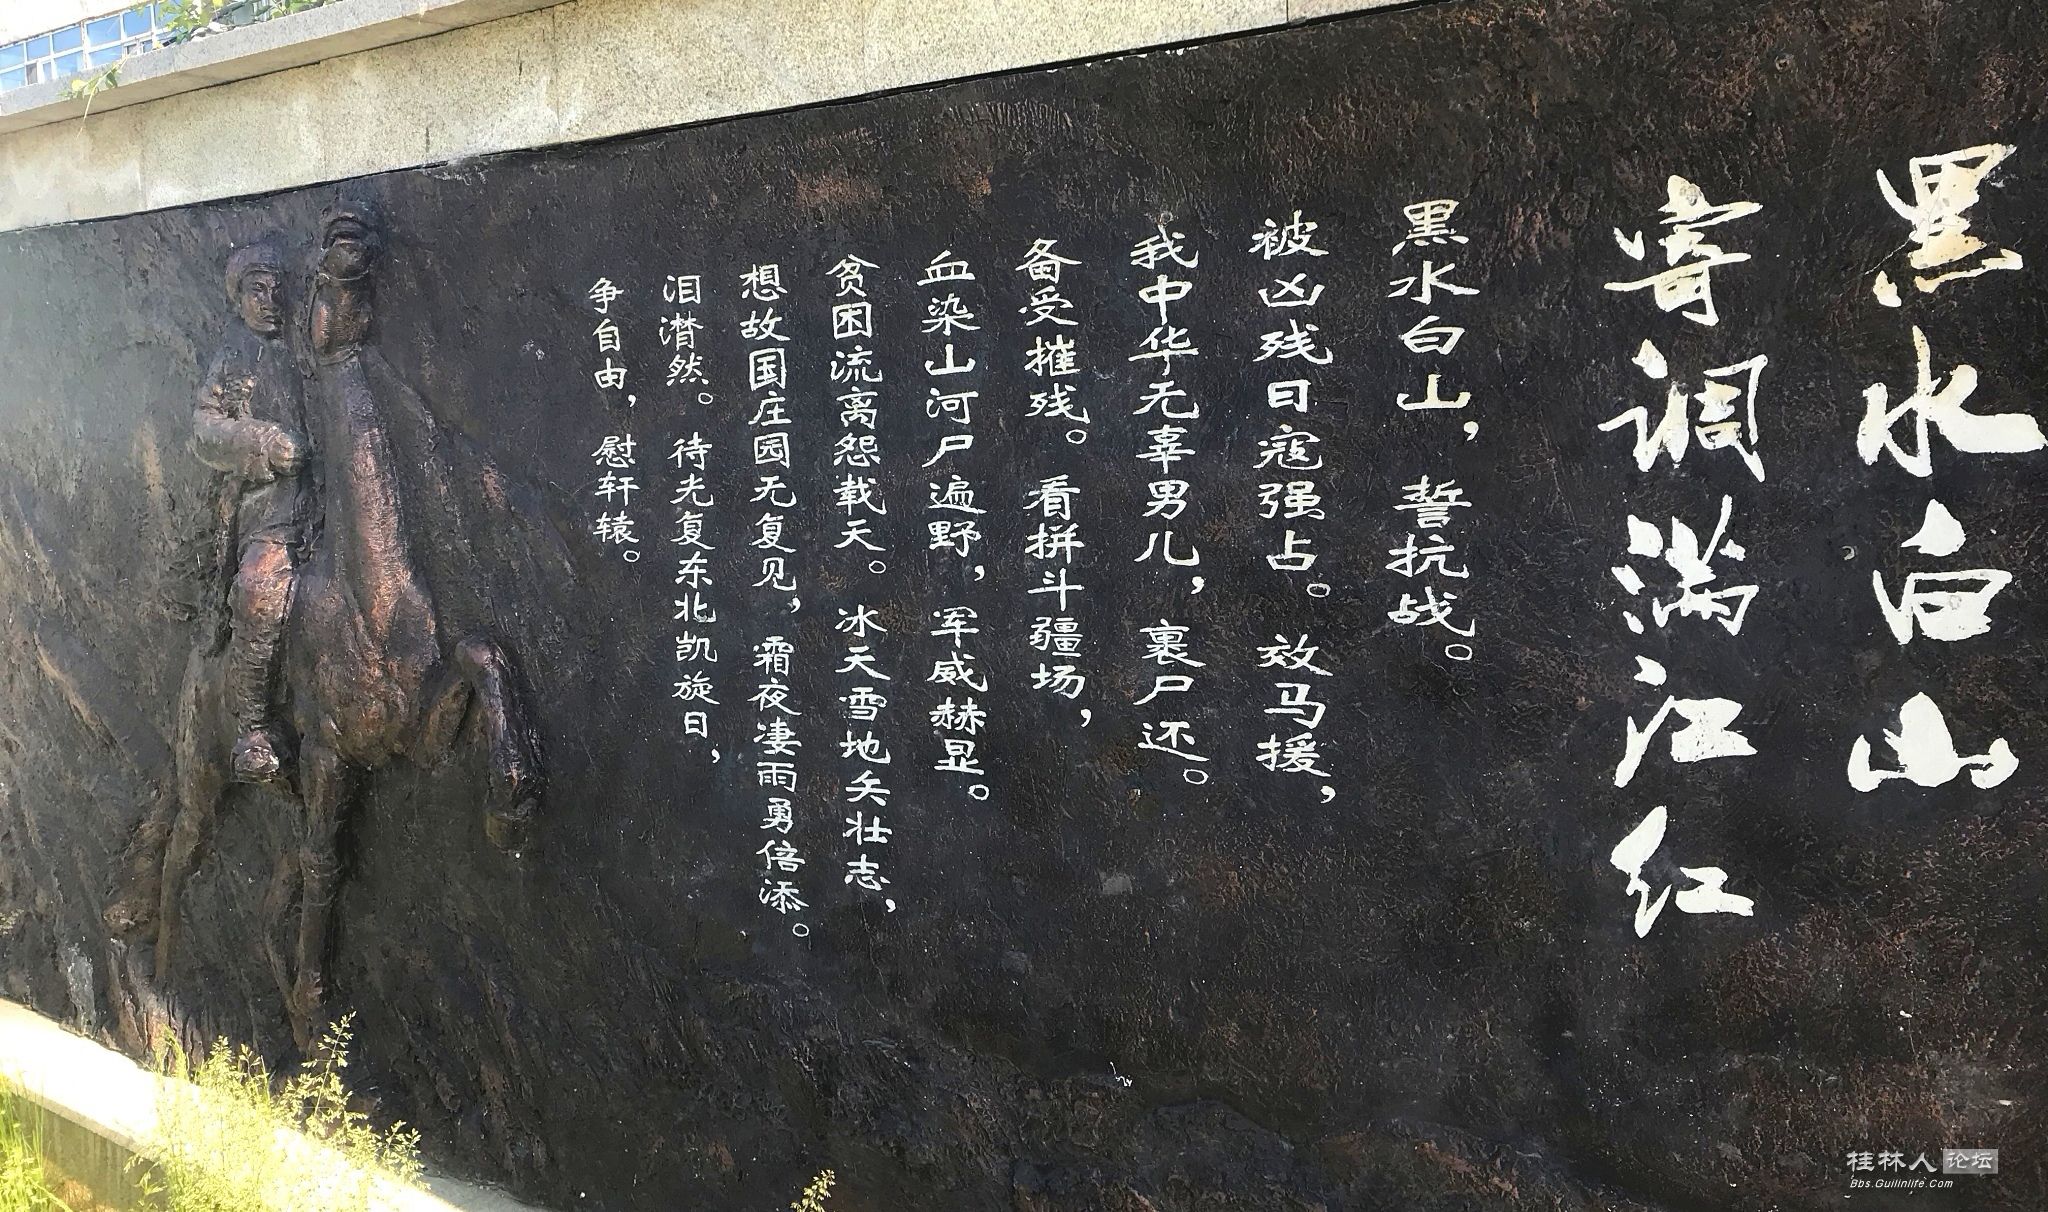 黑水白山
寄调满江红
黑水白山，誓抗战。
被凶残日寇强占。效马援，
我中华无辜男儿，裹尸还。
备受摧残。看拼斗疆场，
血染山河尸遍野，军威赫显。
贫困流离怨载天。冰天雪地矢壮志，
想故国庄园无复见，霜夜凄雨勇倍添。
泪潸然。待光复东北凯旋日，
争自由，慰轩辕。
桂林人论坛
Bbs.Guilinlife.Com